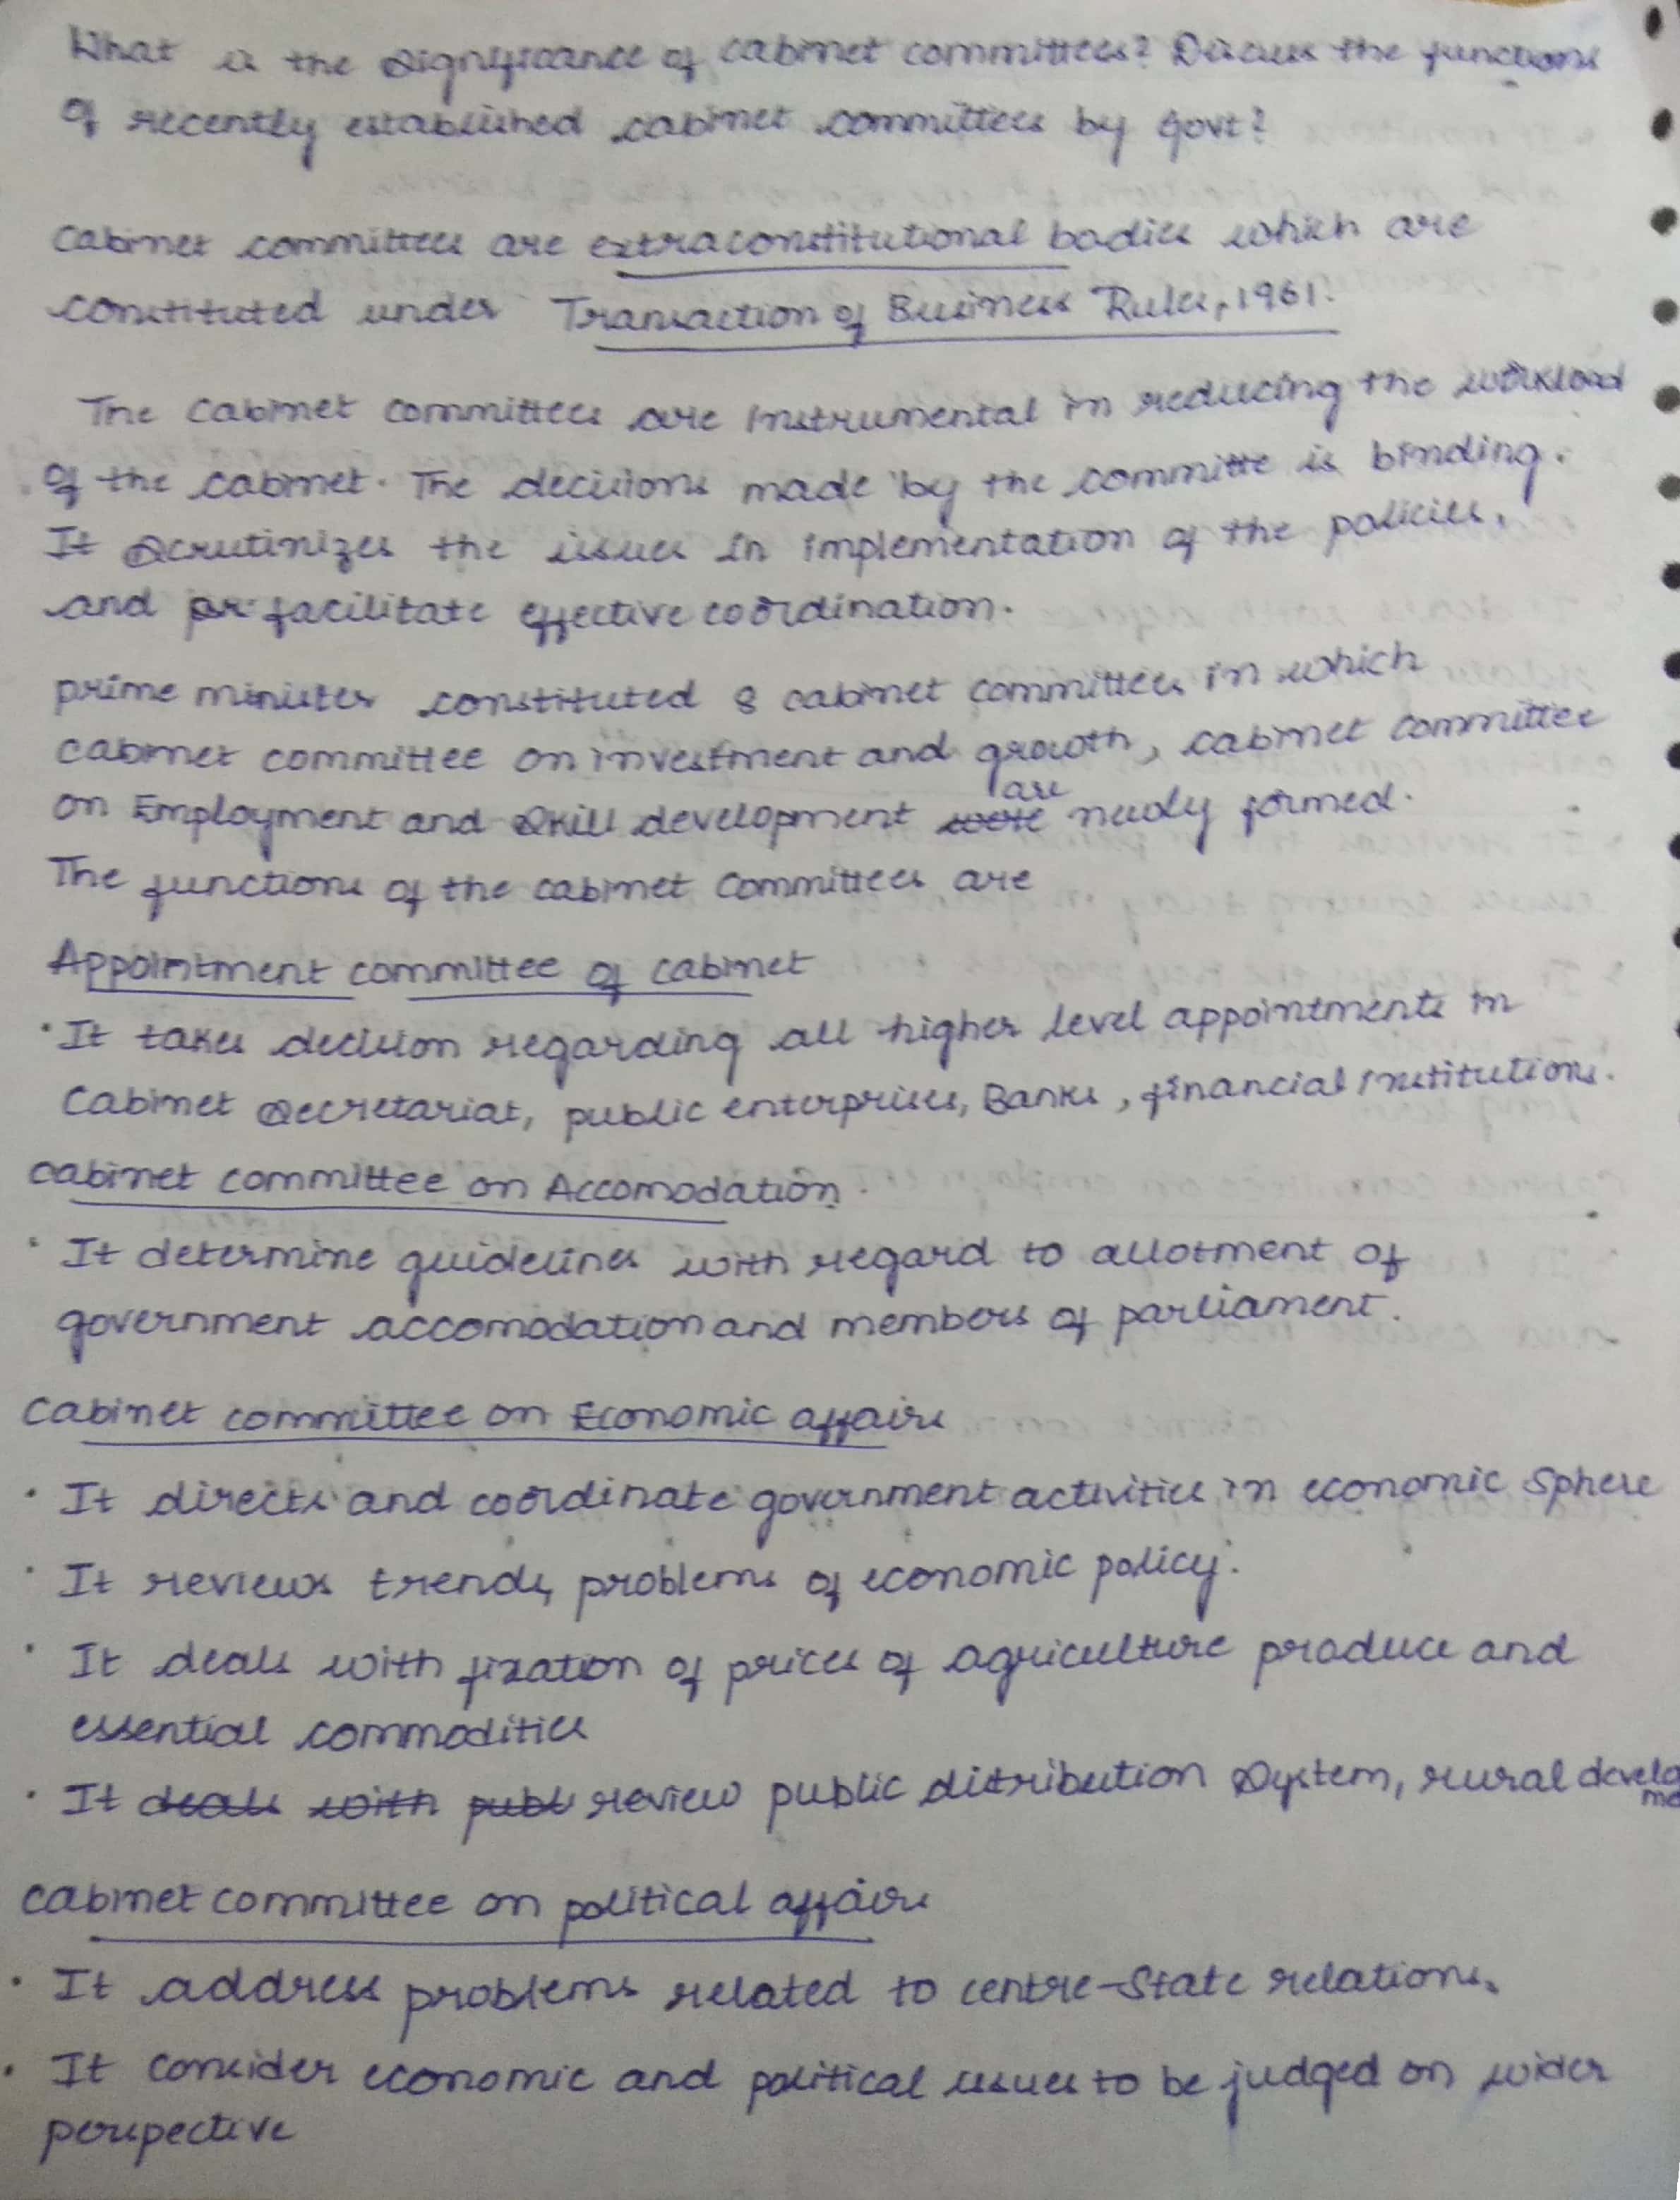 What is the significance of cabinet committees? Discuss the functions
of recently established cabinet committees by govt?
Cabinet committees are extraconstitutional bodies which are
constituted under Transaction of Business Rules, 1961.
The Cabinet committees are instrumental in reducing the workload
of the cabinet. The decisions made by the committe is binding.
It scrutinizes the issues in implementation of the policies,
and facilitate effective coordination.
prime minister constituted 8 cabinet committees in which
cabinet committee on investment and growth, cabinet committee
on Employment and Skill development are newly formed.
The functions of the cabinet committees are
Appointment committee of cabinet
• It takes decision regarding all higher level appointments in
Cabinet Secretariat, public enterprises, Banks, financial institutions.
cabinet committee on Accomodation.
• It determine guidelines with regard to allotment of
government accomodation and members of parliament.
Cabinet committee on Economic affairs
• It directs and coordinate government activities in economic sphere
• It reviews trends, problems of economic policy.
• It deals with fixation of prices of agriculture produce and
essential commodities
• It deals with publ review public distribution system, rural develo
Cabinet committee on political affairs
• It address problems related to centre-state relations.
• It consider economic and political issues to be judged on wider
perspective